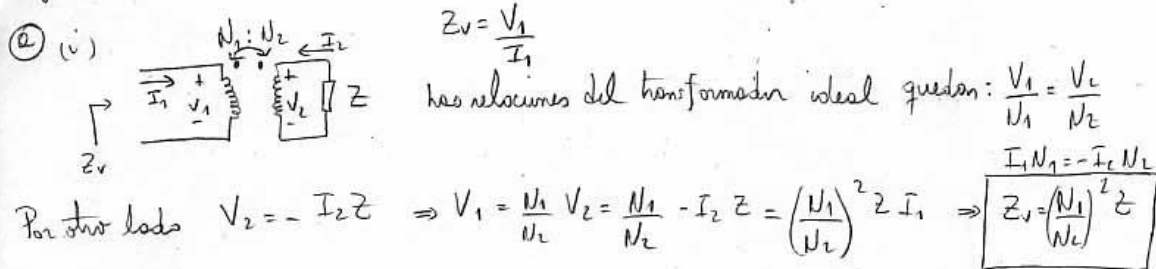 (a) (i) N₁ : N₂ I₂ Z_v = V₁/I₁
I₁ + V₁ - + V₂ - Z Las relaciones del transformador ideal quedan: V₁/N₁ = V₂/N₂
Z_v I₁N₁ = -I₂N₂
Por otro lado V₂ = - I₂Z ⇒ V₁ = N₁/N₂ V₂ = N₁/N₂ - I₂ Z = (N₁/N₂)² Z I₁ ⇒ Z_v = (N₁/N₂)² Z